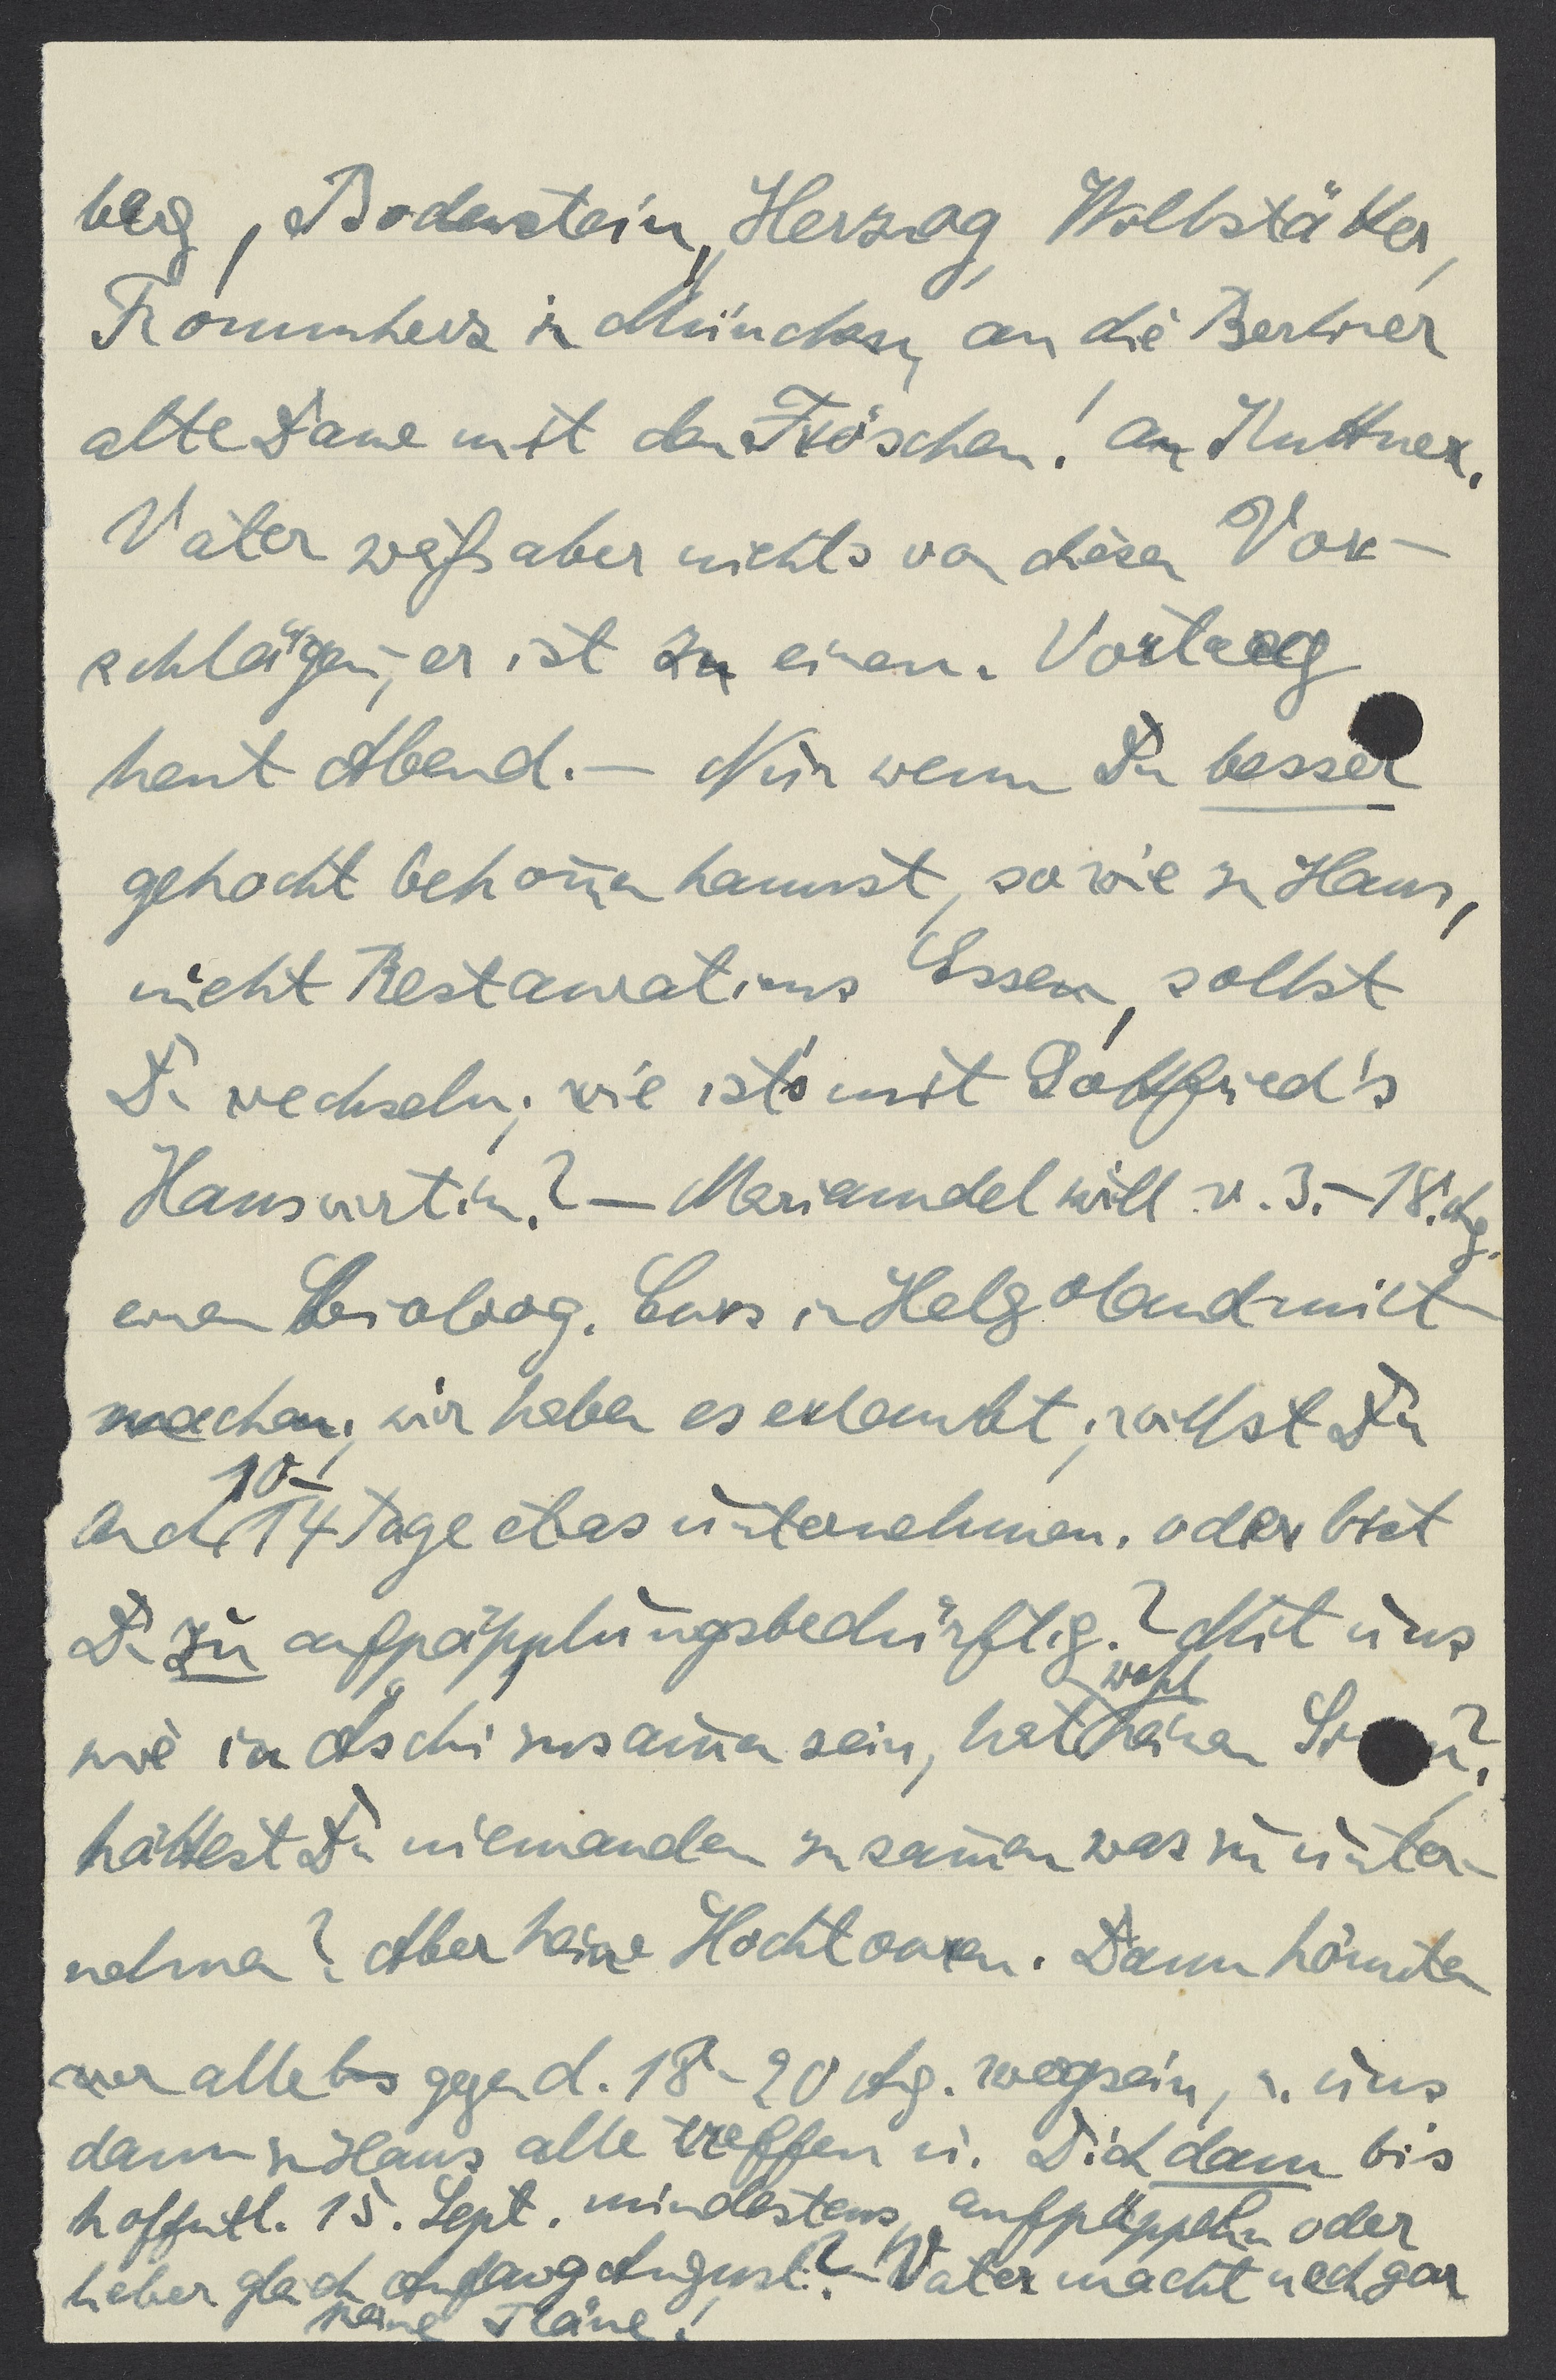 berg, Bodenstein, Herzog, Wollstätter,
Frommherz in München, an die Berliner
alte Dame mit den Fröschen! an Kuttner.
Vater weiß aber nichts von diesen Vor-
schlägen, er ist zu einem Vortrag
heut Abend. — Nur wenn Du besser
gekocht bekom̅en kannst, so wie zu Haus,
nicht Restaurations Essen, sollst
Du wechseln; wie ist's mit Gottfried's
Hauswirtin? — Mariandel will v. 3.–18. Aug.
einen bioloog. Curs in Helgoland mit-
machen; wir haben es erlaubt; willst Du
auch 10-14 Tage etwas unternehmen. oder bist
Du zu aufpäpplungsbedürftig? Mit uns
wie in Äschi zusam̅en sein, hat wohl keinen Sinn?,
hättest Du niemanden zusam̅en was zu unter-
nehmen? Aber keine Hochtouren. Dann könnten
wir alle bis gegen d. 18-20 Aug. wegsein, u. uns
dann zu Haus alle treffen u. Dich dann bis
hoffentl. 15. Sept. mindestens aufpäppeln oder
lieber gleich Anfang August? – Vater macht noch gar
keine Pläne!